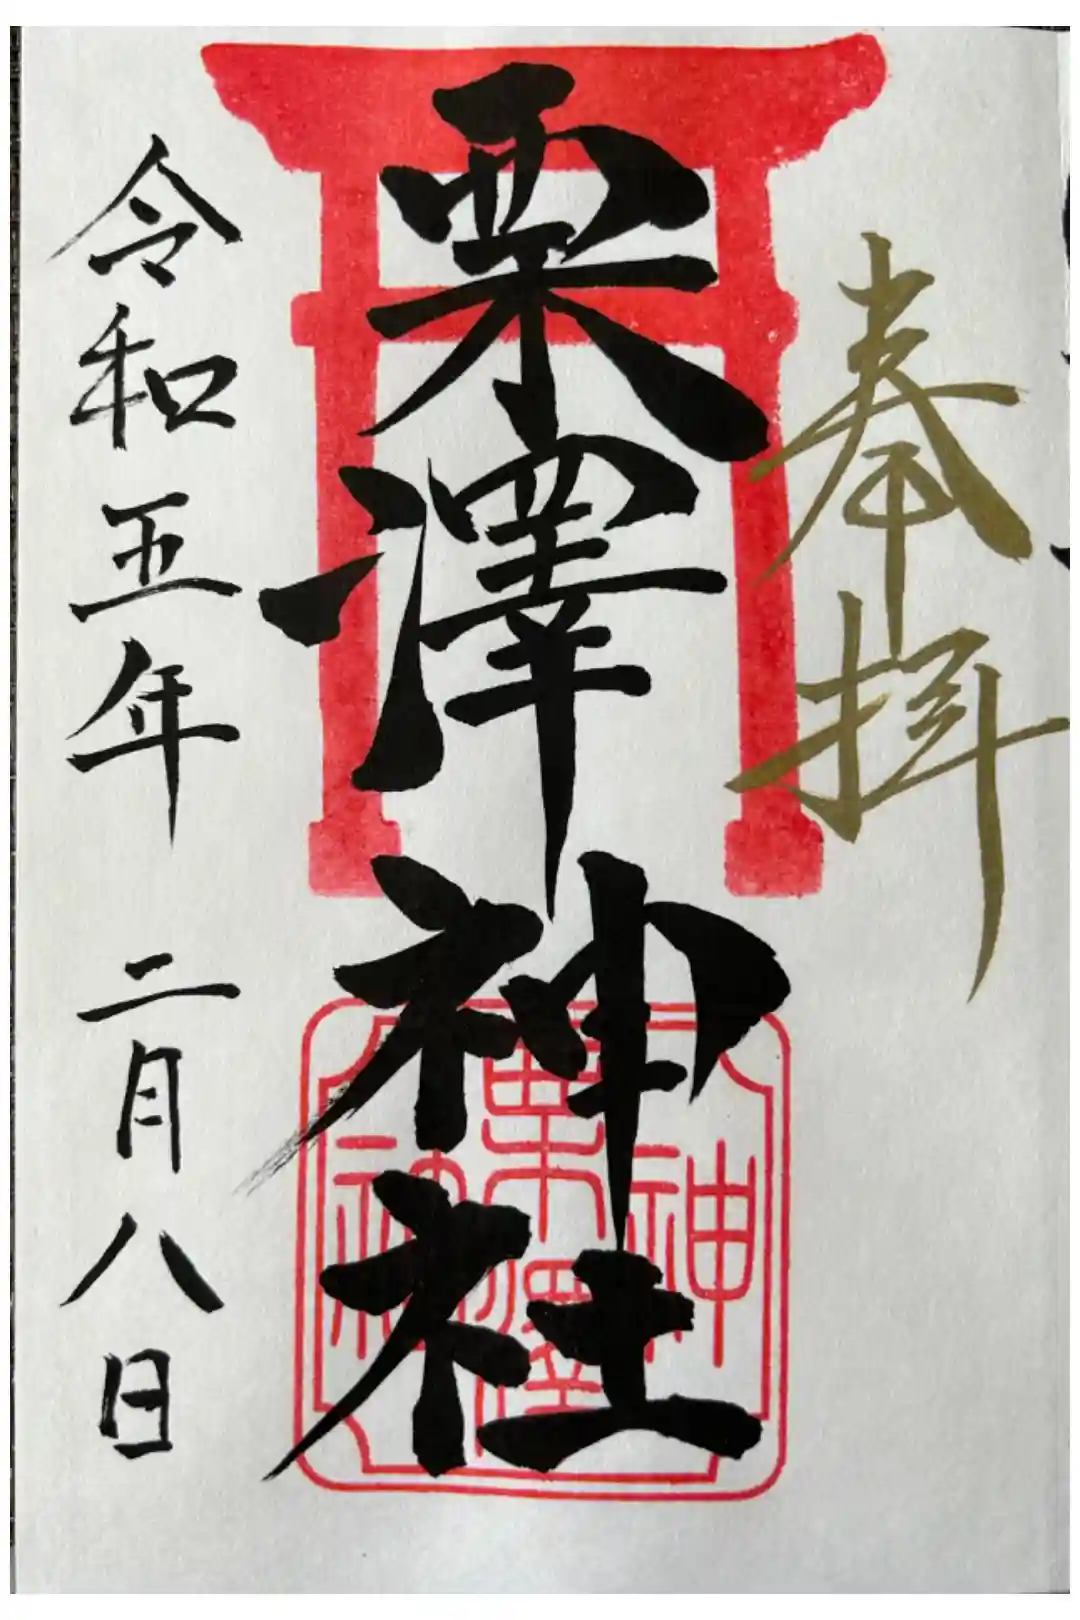 奉拝
栗澤神社
令和五年 二月八日
栗澤
神
社